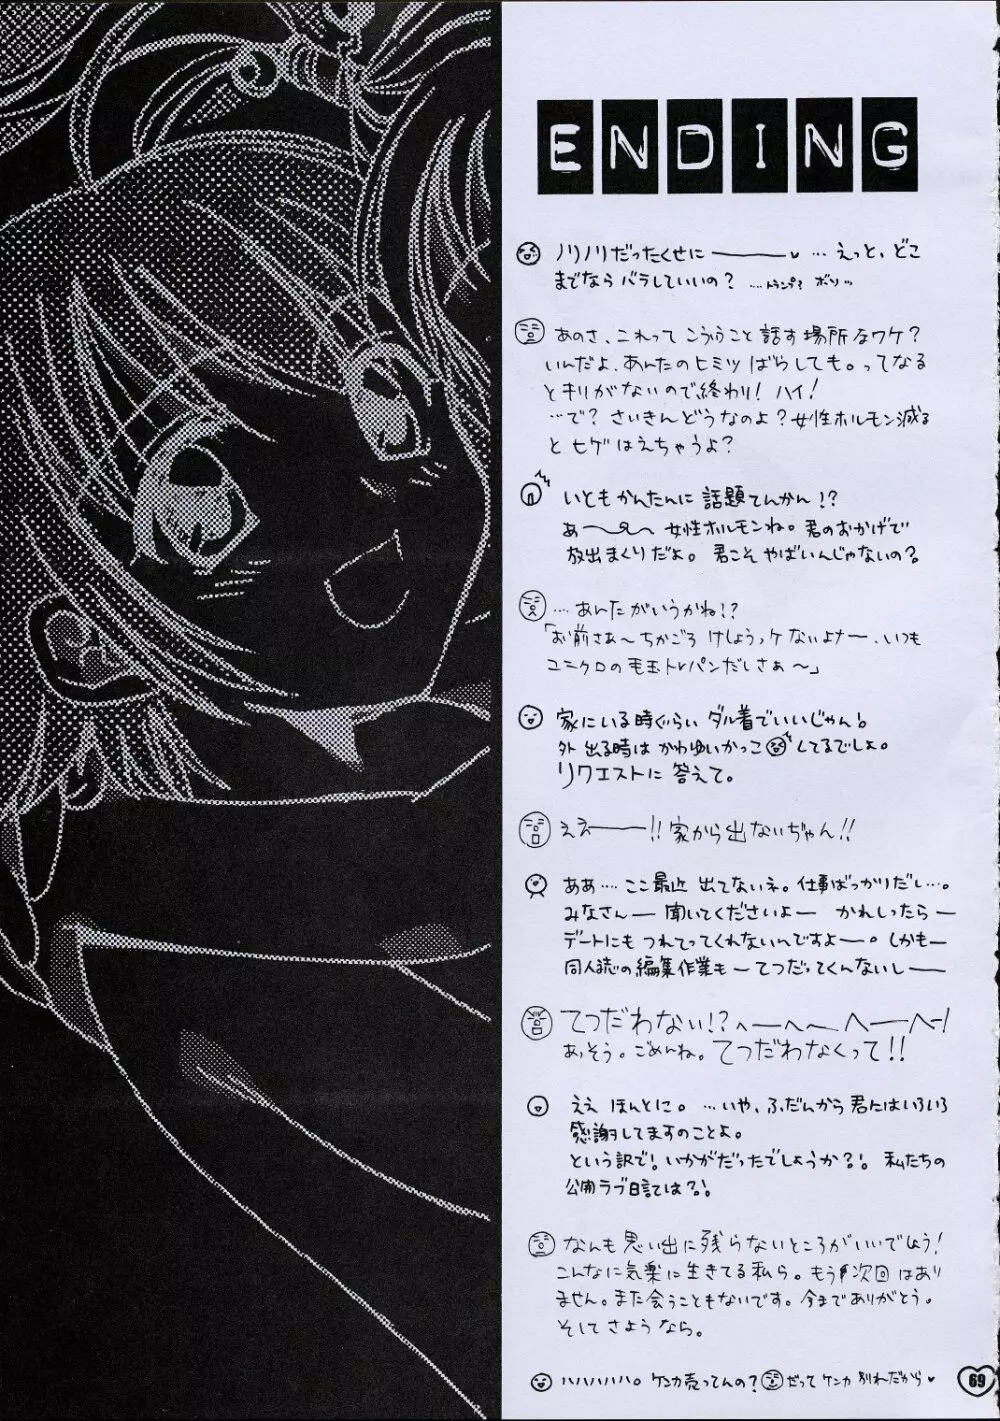 ENDING
ノリノリだったくせに ――― … えっと、どこ
までなら バラしていいの? ....トランプ? ボソッ
あのさ、これって こういうこと 話す 場所 なワケ?
いんだよ、あんたの ヒミツ ばらしても。ってなる
と キリがないので終わり! ハイ!
…で? さいきん どうなのよ? 女性ホルモン減る
と ヒゲ はえちゃうよ?
いとも かんたんに 話題てんかん!?
あ〜〜 女性ホルモンね。君のおかげで
放出まくりだよ。君こそ やばいんじゃないの?
… あんたがいうかね!?
「お前さぁ〜 ちかごろ けしょうッケないよナー、いつも
ユニクロの毛玉トレパンだしさぁ〜」
家にいる時ぐらい ダル着でいいじゃん!
外 出る時は かわゆいかっこ してるでしょ。
リクエストに 答えて。
ええ―――!! 家から出ないぢゃん!!
ああ…. ここ最近 出てないネ。仕事ばっかりだし…。
みなさん― 聞いてくださいよ― かれしったら―
デートにも つれてってくれないんですよ―。しかも―
同人誌の編集作業も― てつだってくんないし――
てつだわない!? へーへー へーへー!
あ、そう。ごめんね。てつだわなくって!!
ええ ほんとに。 …いや、ふだんから 君にはいろいろ
感謝してますのことよ。
という訳で! いかがだったでしょうか?! 私たちの
公開ラブ日記は?!
なんも 思い出に残らないところがいいでしょう!
こんなに気楽に生きてる私ら。もう次回はあり
ません。また会うこともないです。今までありがとう。
そして さようなら。
ハハハハハ。 ケンカ売ってんの? だって ケンカ 別れだから ♥
69